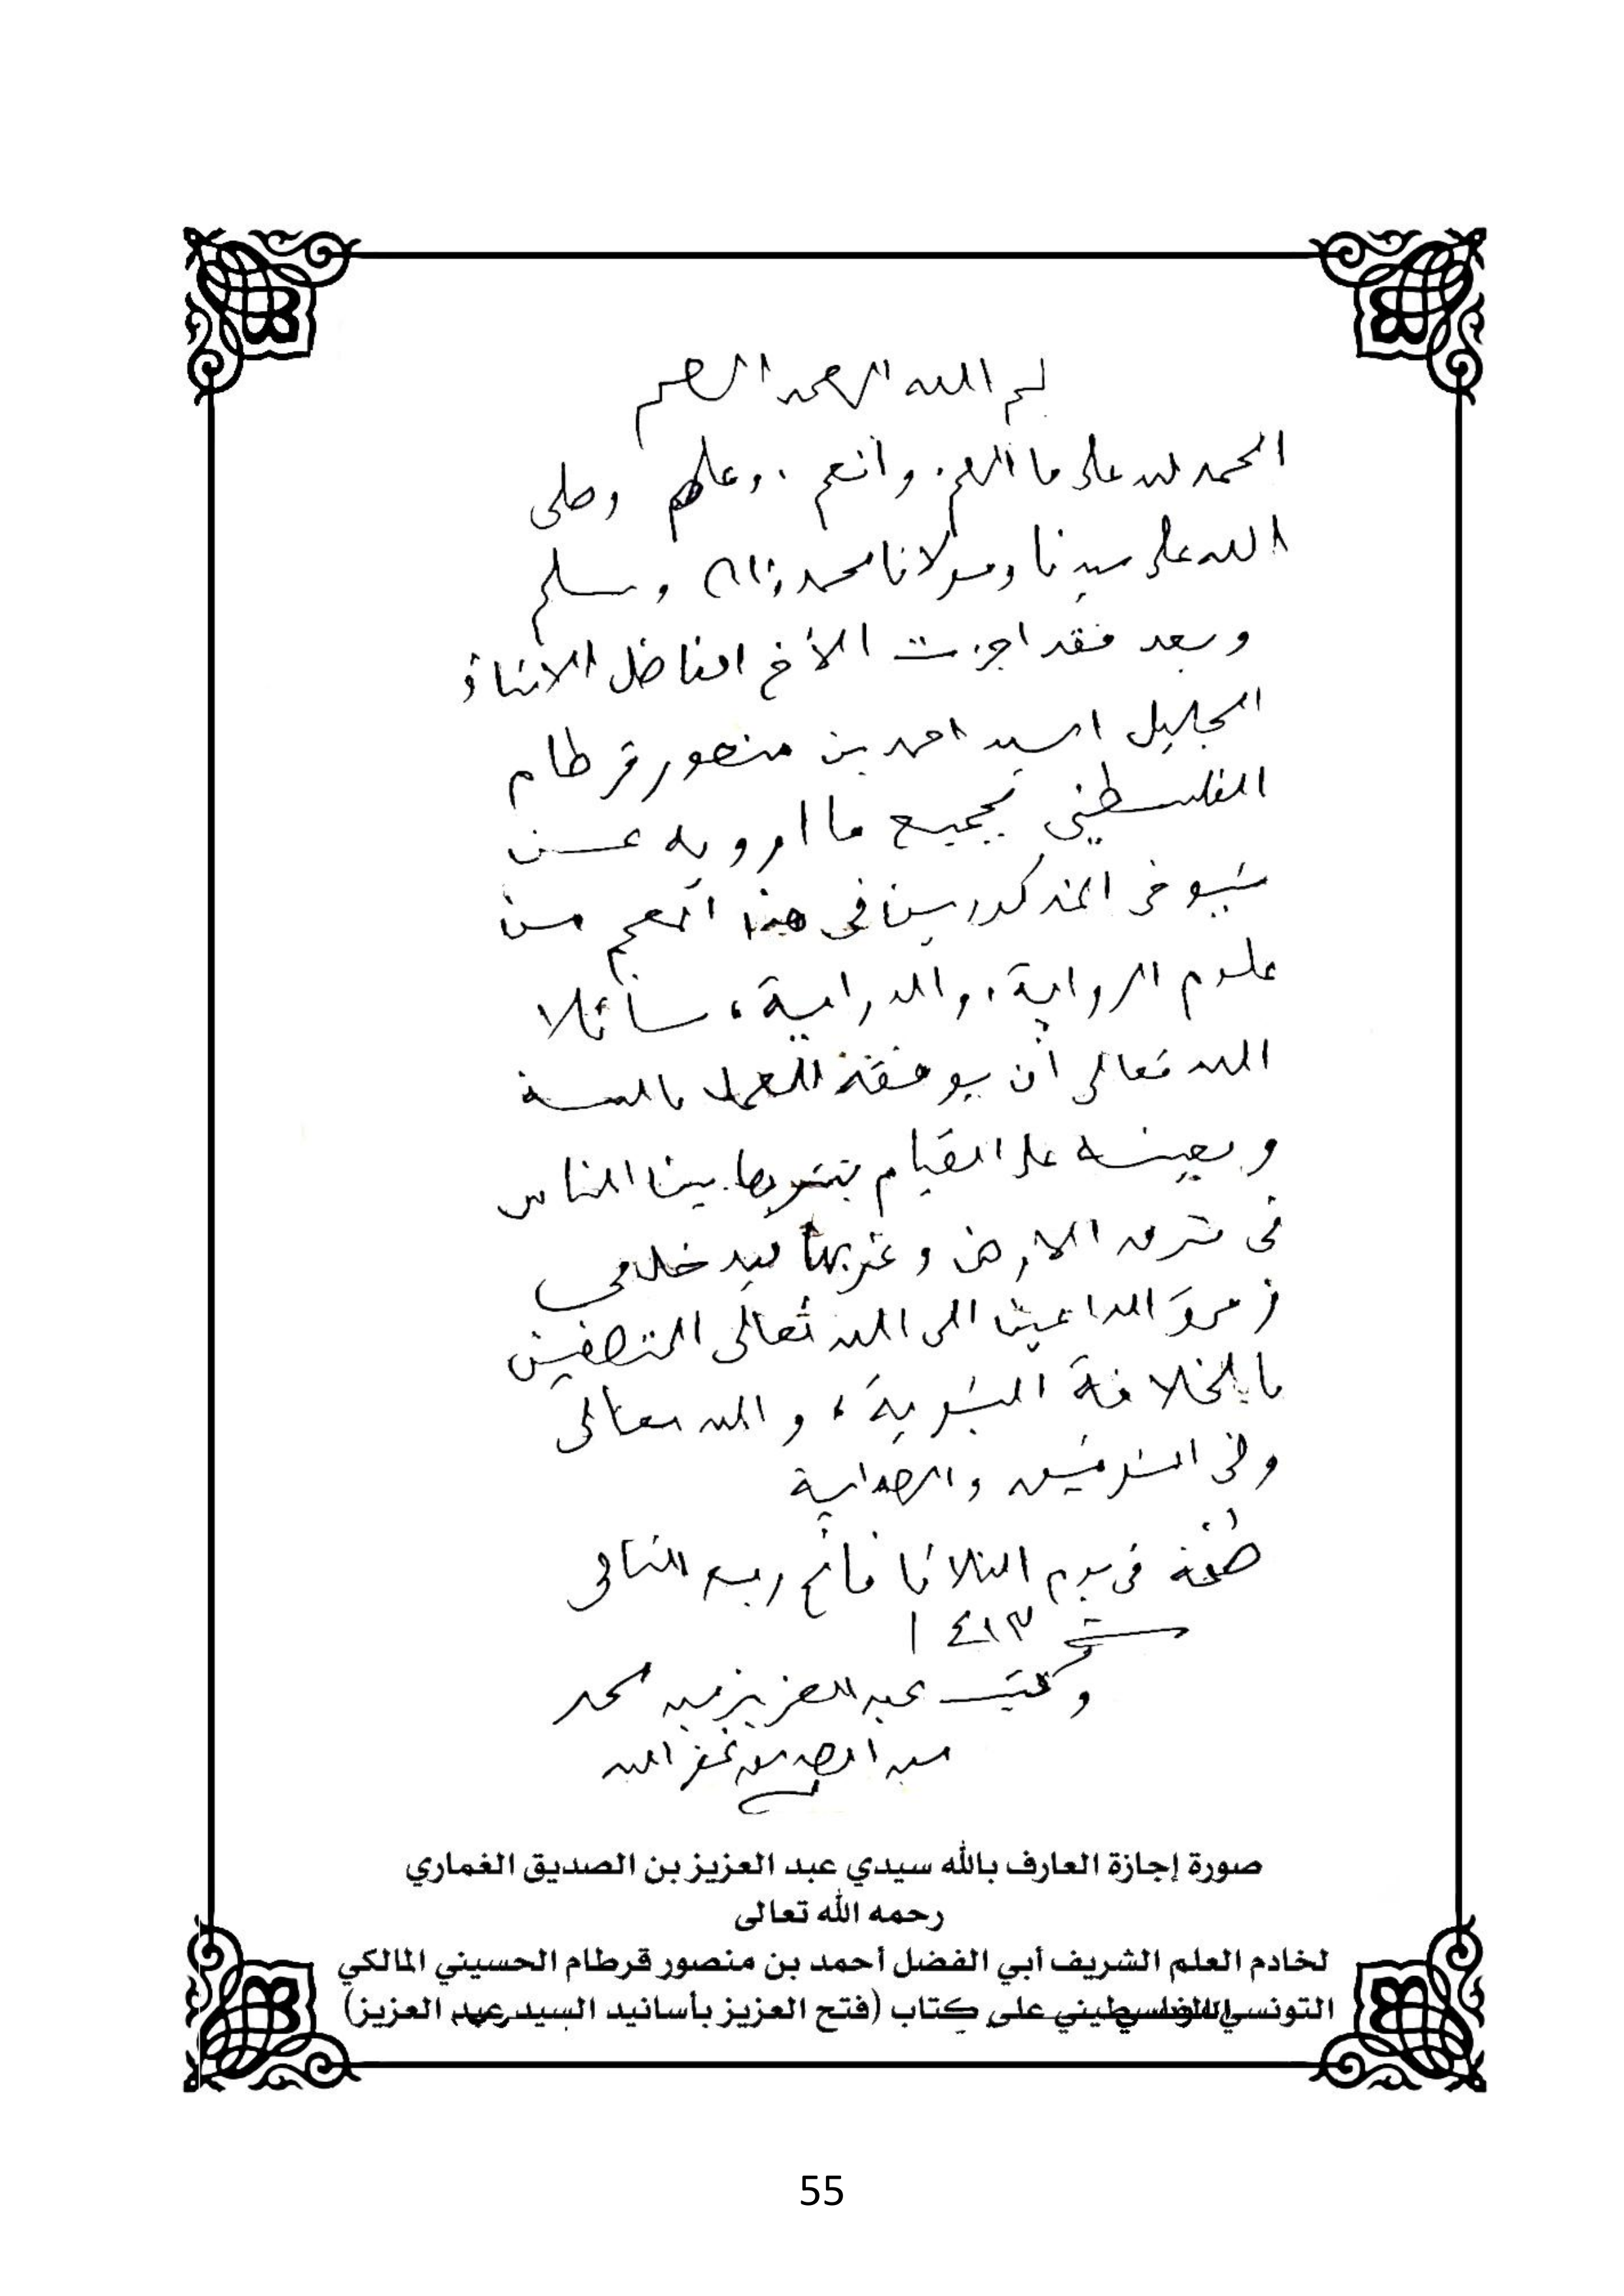 بسم الله الرحمن الرحيم
الحمد لله على ما ألهم. وأنعم.. وعلم وصلى
الله على سيدنا ومولانا محمد وآله وسلم
وبعد فقد اجزت الأخ الفاضل الاستاذ
الجليل السيد احمد بن منصور قرطام
الفلسطيني بجميع ما ارويه عن
شيوخى المذكورين فى هذا المعجم من
علوم الرواية. والدراية، سائلا
الله تعالى أن يوفقه للعمل بالسنة
ويعينه على القيام بنشرها بين الناس
فى شرق الارض وغربها ليدخل فى
زمرة الداعين الى الله تعالى المتصفين
بالخلافة النبوية، والله تعالى
ولى التوفيق والهداية
طنجة فى يوم الثلاثا فاتح ربيع الثانى
١٤١٣
وكتب عبد العزيز بن محمد
بن الصديق غفر الله
صورة إجازة العارف بالله سيدي عبد العزيز بن الصديق الغماري
رحمه الله تعالى
لخادم العلم الشريف أبي الفضل أحمد بن منصور قرطام الحسيني المالكي
التونسي الفلسطيني على كتاب (فتح العزيز بأسانيد السيد عبد العزيز)
55